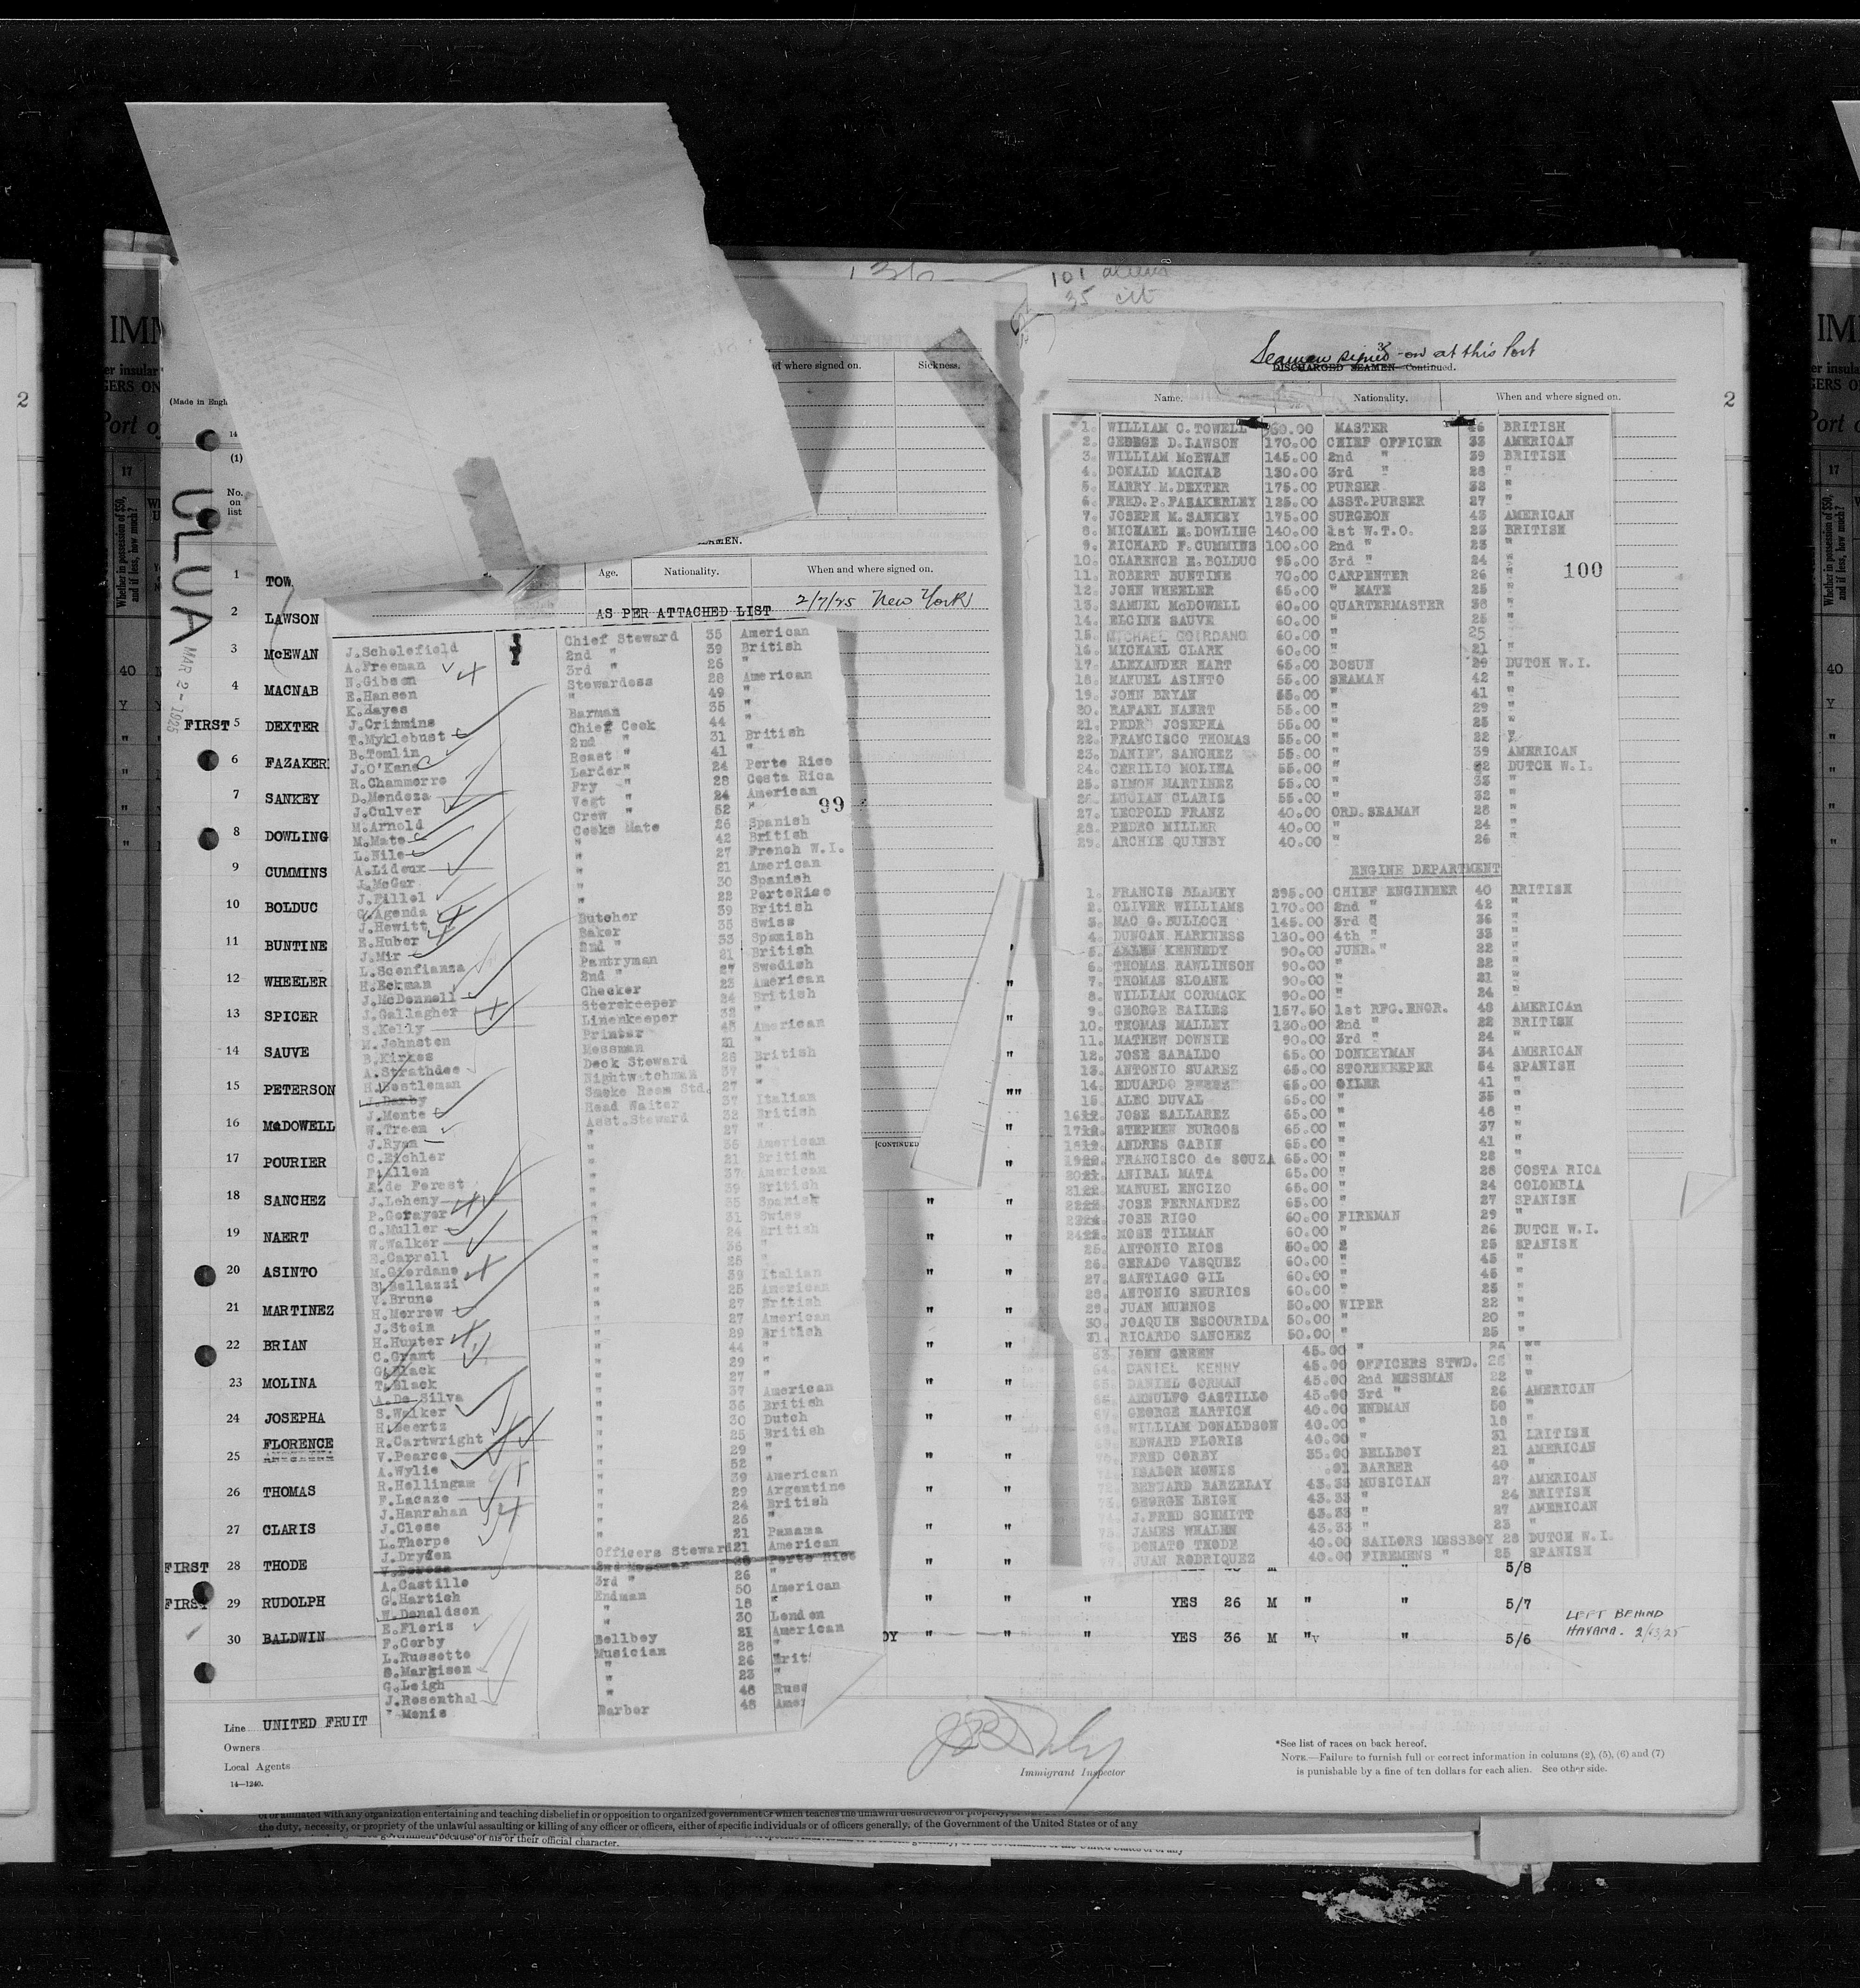 101 aliens
35 cit
Seamen signed on at this Port
DISCHARGED SEAMEN—Continued.
Name. Nationality. When and where signed on.
1. WILLIAM C. TOWELL 360.00 MASTER 46 BRITISH
2. GEORGE D. LAWSON 170.00 CHIEF OFFICER 33 AMERICAN
3. WILLIAM McEWAN 145.00 2nd " 39 BRITISH
4. DONALD MACNAB 130.00 3rd " 28 "
5. HARRY M. DEXTER 175.00 PURSER 32 "
6. FRED. P. FAZAKERLEY 125.00 ASST.PURSER 27 "
7. JOSEPH M. SANKEY 175.00 SURGEON 43 AMERICAN
8. MICHAEL E. DOWLING 140.00 1st W.T.O. 23 BRITISH
9. RICHARD F. CUMMINS 100.00 2nd " 23 "
10. CLARENCE E. BOLDUC 95.00 3rd " 24 "
11. ROBERT BUNTINE 70.00 CARPENTER 26 "
100
12. JOHN WHEELER 65.00 " MATE 25 "
13. SAMUEL McDOWELL 60.00 QUARTERMASTER 38 "
14. ELCINE SAUVE 60.00 " 25 "
15. MICHAEL GOIRDANO 60.00 " 25 "
16. MICHAEL CLARK 60.00 " 21 "
17. ALEXANDER HART 65.00 BOSUN 29 DUTCH W.I.
18. MANUEL ASINTO 55.00 SEAMAN 42 "
19. JOHN BRYAN 55.00 " 41 "
20. RAFAEL NAERT 55.00 " 29 "
21. PEDRO JOSEPHA 55.00 " 25 "
22. FRANCISCO THOMAS 55.00 " 22 "
23. DANIEL SANCHEZ 55.00 " 39 AMERICAN
24. CERILIO MOLINA 55.00 " 52 DUTCH W.I.
25. SIMON MARTINEZ 55.00 " 33 "
26. LUCIAN CLARIS 55.00 " 32 "
27. LEOPOLD FRANZ 40.00 ORD.SEAMAN 28 "
28. PEDRO MILLER 40.00 " 24 "
29. ARCHIE QUINBY 40.00 " 26 "
ENGINE DEPARTMENT
1. FRANCIS BLAMEY 295.00 CHIEF ENGINEER 40 BRITISH
2. OLIVER WILLIAMS 170.00 2nd " 42 "
3. MAC G. BULLOCH 145.00 3rd " 36 "
4. DUNCAN HARKNESS 130.00 4th " 33 "
5. ALLEN KENNEDY 90.00 JUNR. " 22 "
6. THOMAS RAWLINSON 90.00 " 22 "
7. THOMAS SLOANE 90.00 " 21 "
8. WILLIAM CORMACK 90.00 " 24 "
9. GEORGE BAILES 157.50 1st RFG.ENGR. 48 AMERICAn
10. THOMAS MALLEY 130.00 2nd " 22 BRITISH
11. MATHEW DOWNIE 90.00 3rd " 24 "
12. JOSE SABALDO 65.00 DONKEYMAN 34 AMERICAN
13. ANTONIO SUAREZ 65.00 STOREKEEPER 54 SPANISH
14. EDUARDO PEREZ 65.00 OILER 41 "
15. ALEC DUVAL 65.00 " 35 "
16 JOSE SALLAREZ 65.00 " 48 "
17 STEPHEN BURGOS 65.00 " 37 "
18 ANDRES GABIN 65.00 " 41 "
19 FRANCISCO de SOUZA 65.00 " 28 "
20 ANIBAL MATA 65.00 " 28 COSTA RICA
21 MANUEL ENCIZO 65.00 " 24 COLOMBIA
22 JOSE FERNANDEZ 65.00 " 27 SPANISH
23 JOSE RIGO 60.00 FIREMAN 29 "
24 MOSE TILMAN 60.00 " 26 DUTCH W.I.
25. ANTONIO RIOS 60.00 " 25 SPANISH
26. GERADO VASQUEZ 60.00 " 45 "
27. SANTIAGO GIL 60.00 " 45 "
28. ANTONIO SEURIOS 60.00 " 25 "
29. JUAN MUENOS 50.00 WIPER 22 "
30. JOAQUIN ESCOURIDA 50.00 " 20 "
31. RICARDO SANCHEZ 50.00 " 25 "
JOHN GREEN 45.00 "
DANIEL KENNY 45.00 OFFICERS STWD.
DANIEL GORMAN 45.00 2nd MESSMAN 22 "
ARNULVO CASTILLO 45.00 3rd " 26 AMERICAN
GEORGE HARTICH 40.00 ENDMAN 50 "
WILLIAM DONALDSON 40.00 " 18 "
EDWARD FLORIS 40.00 " 31 LRITISH
FRED CORBY 35.00 BELLBOY 21 AMERICAN
ISADOR MONIS .01 BARBER 48 "
BERNARD BARZELAY 43.33 MUSICIAN 27 AMERICAN
GEORGE LEIGH 43.33 " 24 BRITISH
J. FRED SCHMITT 43.33 " 27 AMERICAN
JAMES WHALEN 43.33 " 23 "
DONATO THODE 40.00 SAILORS MESSBOY 28 DUTCH W.I.
JUAN RODRIQUEZ 40.00 FIREMENS " 25 SPANISH
where signed on. Sickness.
Age. Nationality. When and where signed on.
AS PER ATTACHED LIST 2/7/25 New York
99
J.Scholefield Chief Steward 35 American
A.Freeman 2nd " 39 British
N.Gibson 3rd " 26 "
E.Hansen Stewardess 28 American
K.Hayes " 49 "
J.Crimmins Barman 35 "
T.Myklebust Chief Cook 44 "
B.Tomlin 2nd " 31 British
J.O'Kane Roast " 41 "
R.Chammorro Larder" 24 Porto Rico
D.Mendoza Fry " 28 Costa Rica
J.Culver Vegt " 24 American
M.Arnold Crew " 52 "
M.Mato Cooks Mate 26 Spanish
L.Nile " 42 British
A.Lideux " 27 French W.I.
J.McGar " 21 American
J.Pillol " 30 Spanish
G.Agenda " 22 PortoRico
J.Hewitt Butcher 39 British
E.Huber Baker 35 Swiss
J.Mir 2nd " 33 Spanish
L.Sconfianza Pantryman 21 British
H.Eckman 2nd " 27 Swedish
J.McDonnell Checker 23 American
J.Gallagher Storekeeper 24 British
S.Kelly Linenkeeper 32 "
M.Johnston Printer 45 American
B.Kirkes Messman 21 "
A.Strathdee Deck Steward 26 British
H.Bostleman Nightwatchman 37 "
J.Darby Smoke Room Std. 27 "
J.Monte Head Waiter 37 Italian
W.Treen Asst.Steward 32 British
J.Ryan " 27 "
C.Eichler " 36 American
P.Allen " 21 British
E.de Forest " 37 American
J.Leheny " 39 British
P.Gorayer " 35 Spanish
C.Muller " 31 Swiss
W.Walker " 24 British
E.Carroll " 36 "
M.Giordano " 25 "
S.Bellazzi " 39 Italian
V.Brune " 25 American
H.Morrow " 27 British
J.Stein " 27 American
H.Hunter " 29 British
C.Grant " 44 "
G.Black " 29 "
T.Black " 27 "
A.De Silva " 37 American
S.Walker " 36 British
H.Geertz " 30 Dutch
R.Cartwright " 25 British
V.Pearce " 29 "
A.Wylie " 52 "
R.Hollingam " 39 American
F.Lacaze " 29 Argentine
J.Hanrahan " 24 British
J.Close " 25 "
L.Thorpe " 21 Panama
J.Dryden Officers Steward 21 American
2nd Messman Porto Rico
A.Castillo 3rd " 26 "
G.Hartich Endman 50 American
W.Donaldson " 18 "
E.Floris " 30 London
F.Corby Bellboy 21 American
L.Russotto Musician 28 "
S.Margison " 26 Brit
G.Leigh " 23 "
J.Rosenthal " 48 Russ
Monis Barber 48 Amer
(Made in Engl
ULUA
MAR 2 - 1925
No. on list
1 TOW
2 LAWSON
3 McEWAN
4 MACNAB
FIRST 5 DEXTER
6 FAZAKER
7 SANKEY
8 DOWLING
9 CUMMINS
10 BOLDUC
11 BUNTINE
12 WHEELER
13 SPICER
14 SAUVE
15 PETERSON
16 McDOWELL
17 POURIER
18 SANCHEZ
19 NAERT
20 ASINTO
21 MARTINEZ
22 BRIAN
23 MOLINA
24 JOSEPHA
25 FLORENCE
26 THOMAS
27 CLARIS
FIRST 28 THODE 5/8
FIRST 29 RUDOLPH " " " YES 26 M " " 5/7
30 BALDWIN OY " " " YES 36 M " " 5/6
LEFT BEHIND
HAVANA. 2/13/25
[CONTINUED
Line UNITED FRUIT
Owners
Local Agents
14—1240.
Immigrant Inspector
*See list of races on back hereof.
NOTE.—Failure to furnish full or correct information in columns (2), (5), (6) and (7)
is punishable by a fine of ten dollars for each alien. See other side.
the duty, necessity, or propriety of the unlawful assaulting or killing of any officer or officers, either of specific individuals or of officers generally, of the Government of the United States or of any
because of his or their official character.
2
2
17
Whether in possession of $50, and if less, how much?
40
Y
IMM
Port o